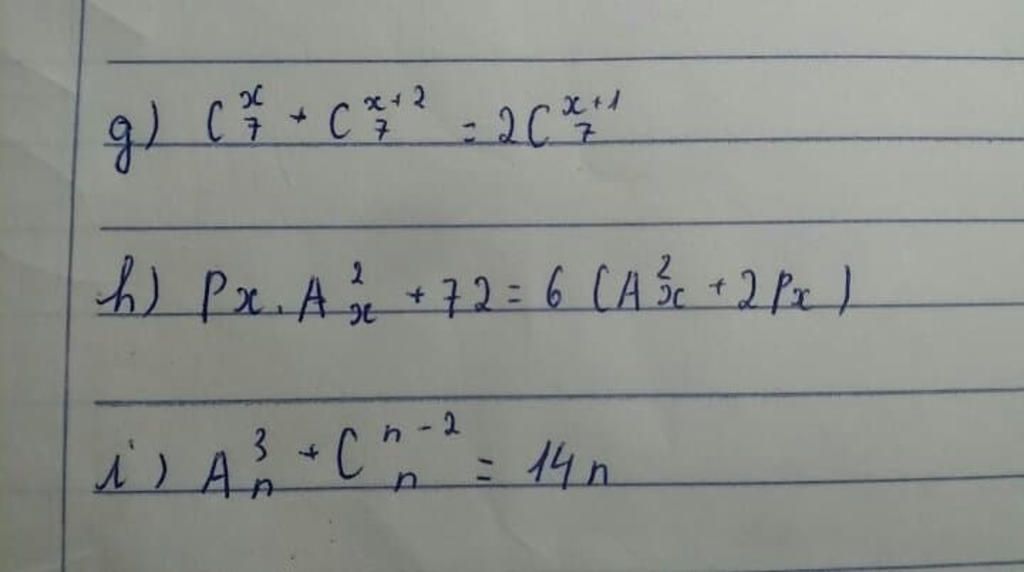 g) C₇ˣ + C₇ˣ⁺² = 2C₇ˣ⁺¹
h) Px . Aₓ² + 72 = 6 (Aₓ² + 2Px)
i) Aₙ³ + Cₙⁿ⁻² = 14n